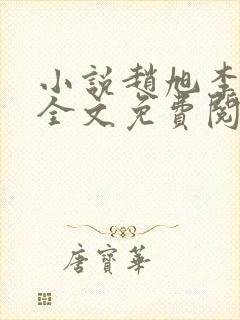 小說趙旭李
全文免費閱
唐寶華